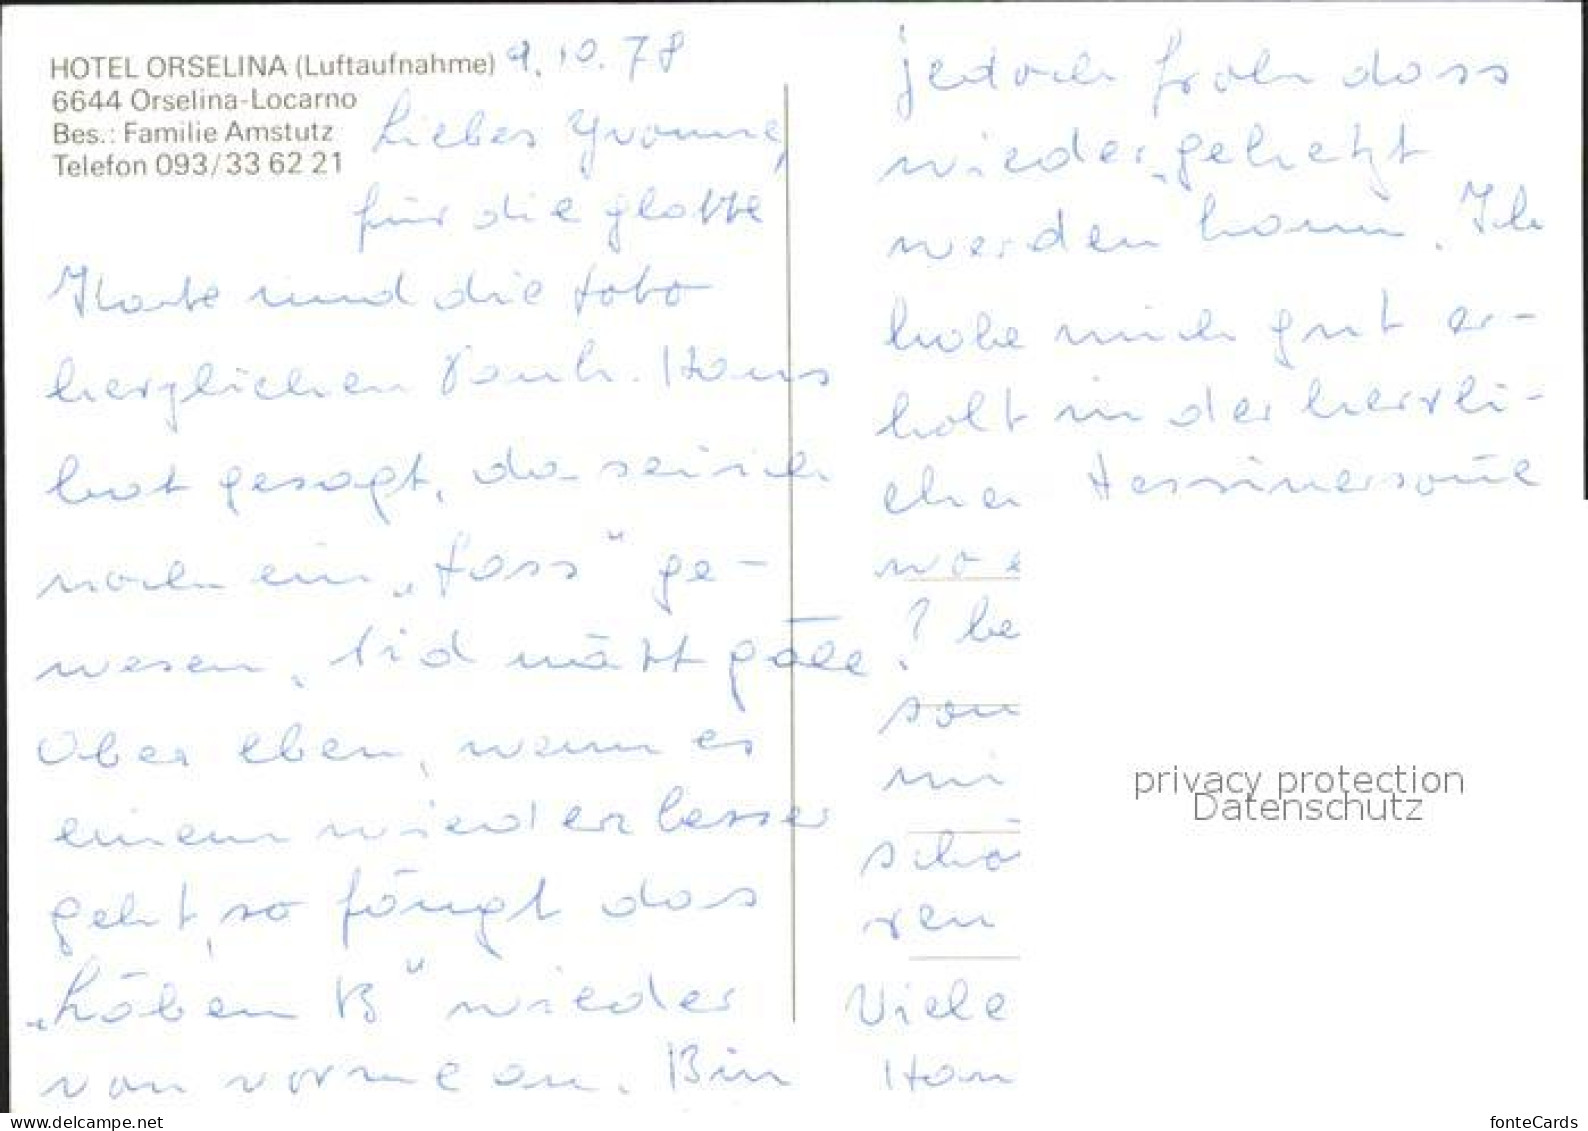 HOTEL ORSELINA (Luftaufnahme)
6644 Orselina-Locarno
Bes.: Familie Amstutz
Telefon 093/33 62 21
9.10.78
Liebes Yvonne,
für die glatte
Karte und die Foto
herzlichen Dank. Hans
hat gesagt, da sei ich
noch ein „Fass" ge-
wesen,
Aber eben, wenn es
einem wieder besser
geht, so fängt das
„Läben B" wieder
von vorne an. Bin
jedoch froh dass
wieder gehetzt
werden kann. Ich
habe mich gut er-
holt in der herrli-
chen Tessinersonne
wo
? be
son
mi
schö
ren
Viele
Han
privacy protection
Datenschutz
www.delcampe.net
fonteCards